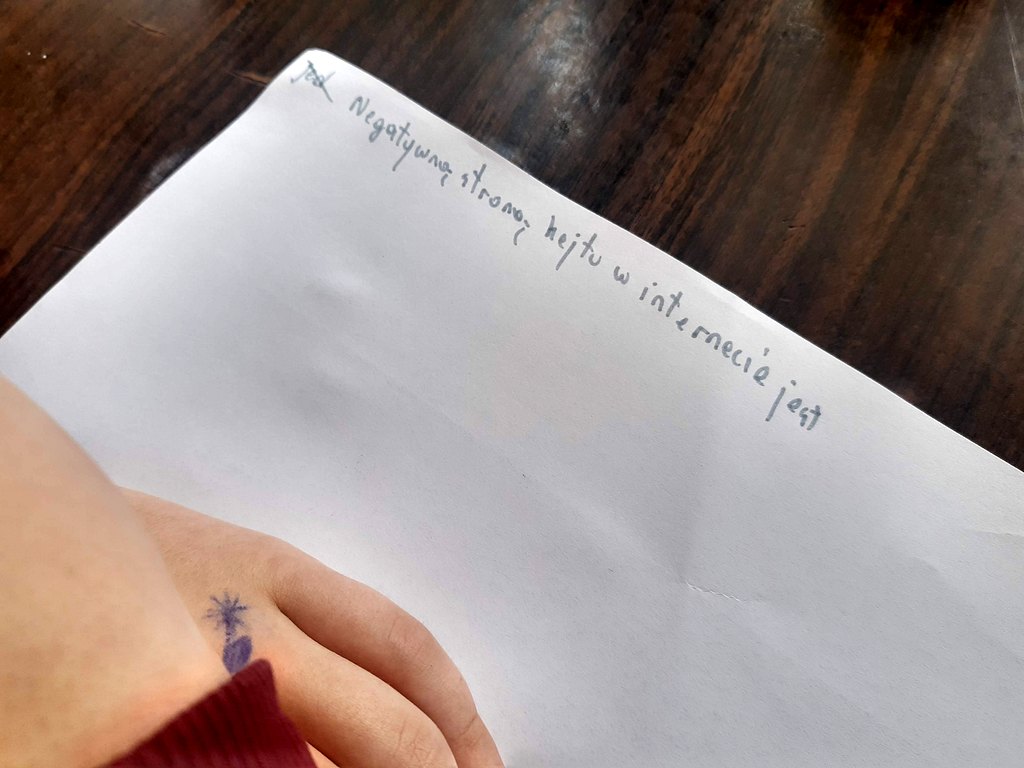 Negatywną stroną hejtu w internecie jest